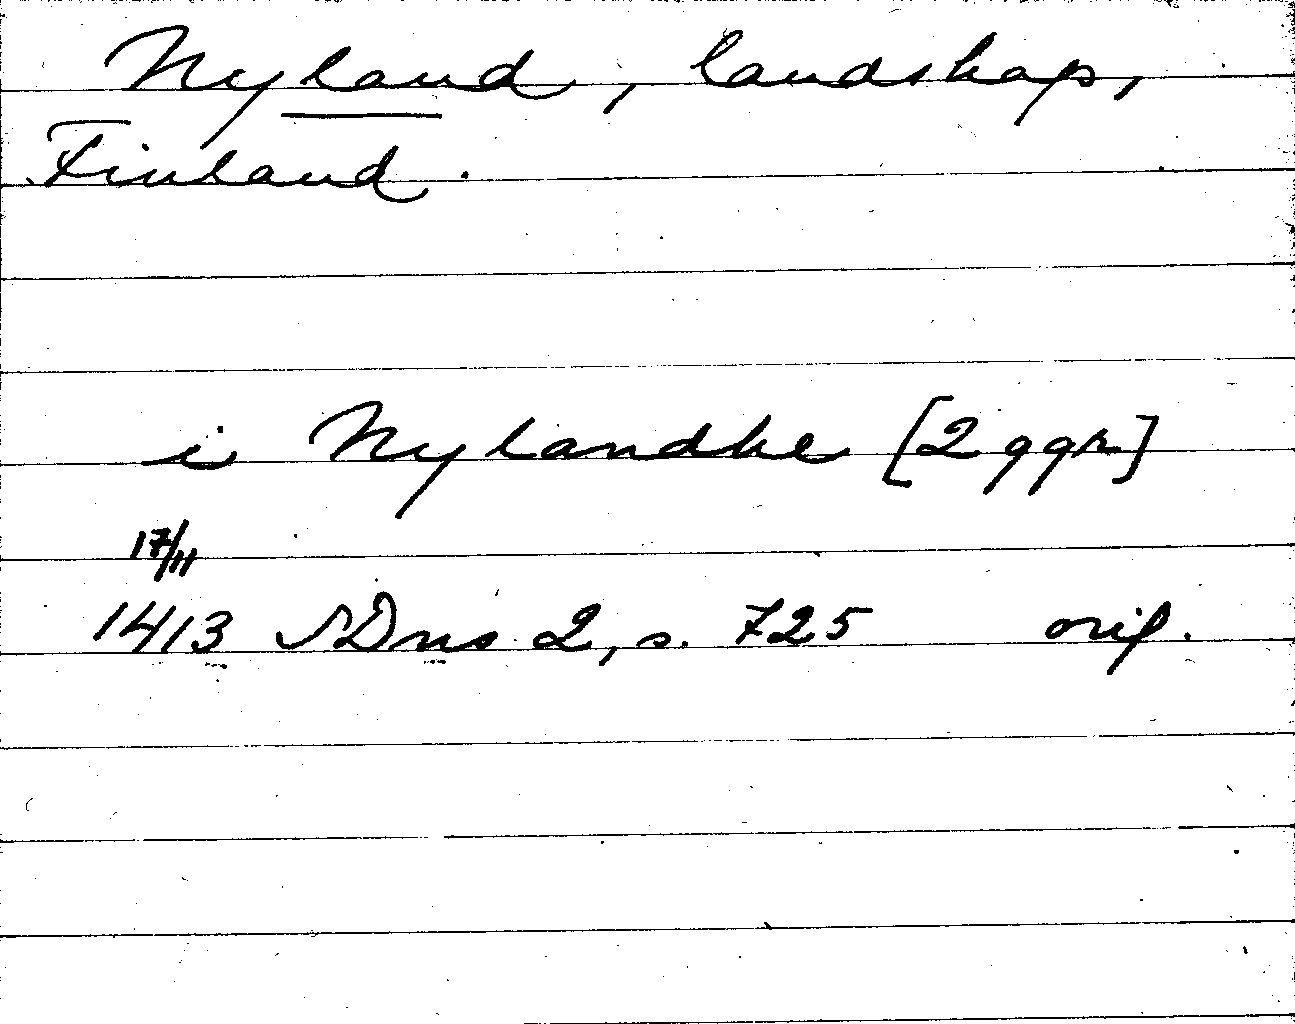 Nyland, landskap,
Finland.
i Nylandhe [2 ggr]
17/11
1413 SDns 2, s. 725 orig.